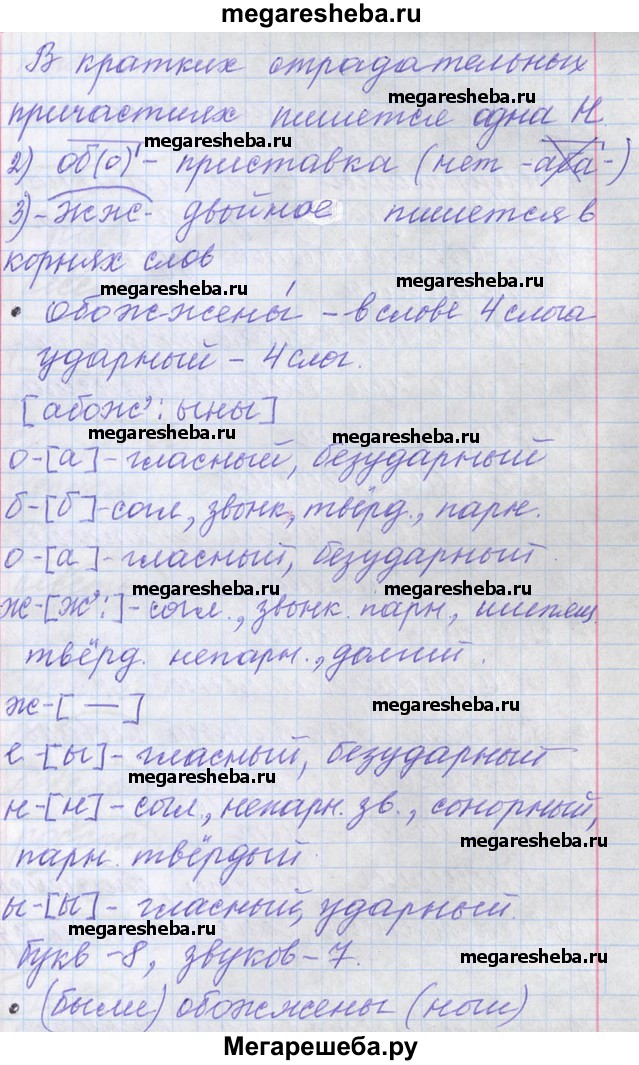 megaresheba.ru
В кратких страдательных
megaresheba.ru
причастиях пишется одна Н.
megaresheba.ru
2) об(о) - приставка (нет -аба-)
3) -жж- двойное пишется в
корнях слов
megaresheba.ru
• обожжены́ - в слове 4 слога
ударный - 4 слог.
[абож':ыны]
megaresheba.ru
megaresheba.ru
о-[а]-гласный, безударный
б-[б]-согл, звонк, твёрд., парн.
megaresheba.ru
о-[а]-гласный, безударный.
megaresheba.ru
ж-[ж':]-согл., звонк. парн., шипящ.
твёрд. непарн., долгий.
ж-[—]
megaresheba.ru
е-[ы]-гласный, безударный
megaresheba.ru
н-[н]-согл., непарн. зв., сонорный,
megaresheba.ru
парн. твёрдый.
ы-[ы]- гласный, ударный.
megaresheba.ru
букв -8, звуков-7.
megaresheba.ru
• (были) обожжены (ноги)
Мегарешеба.ру